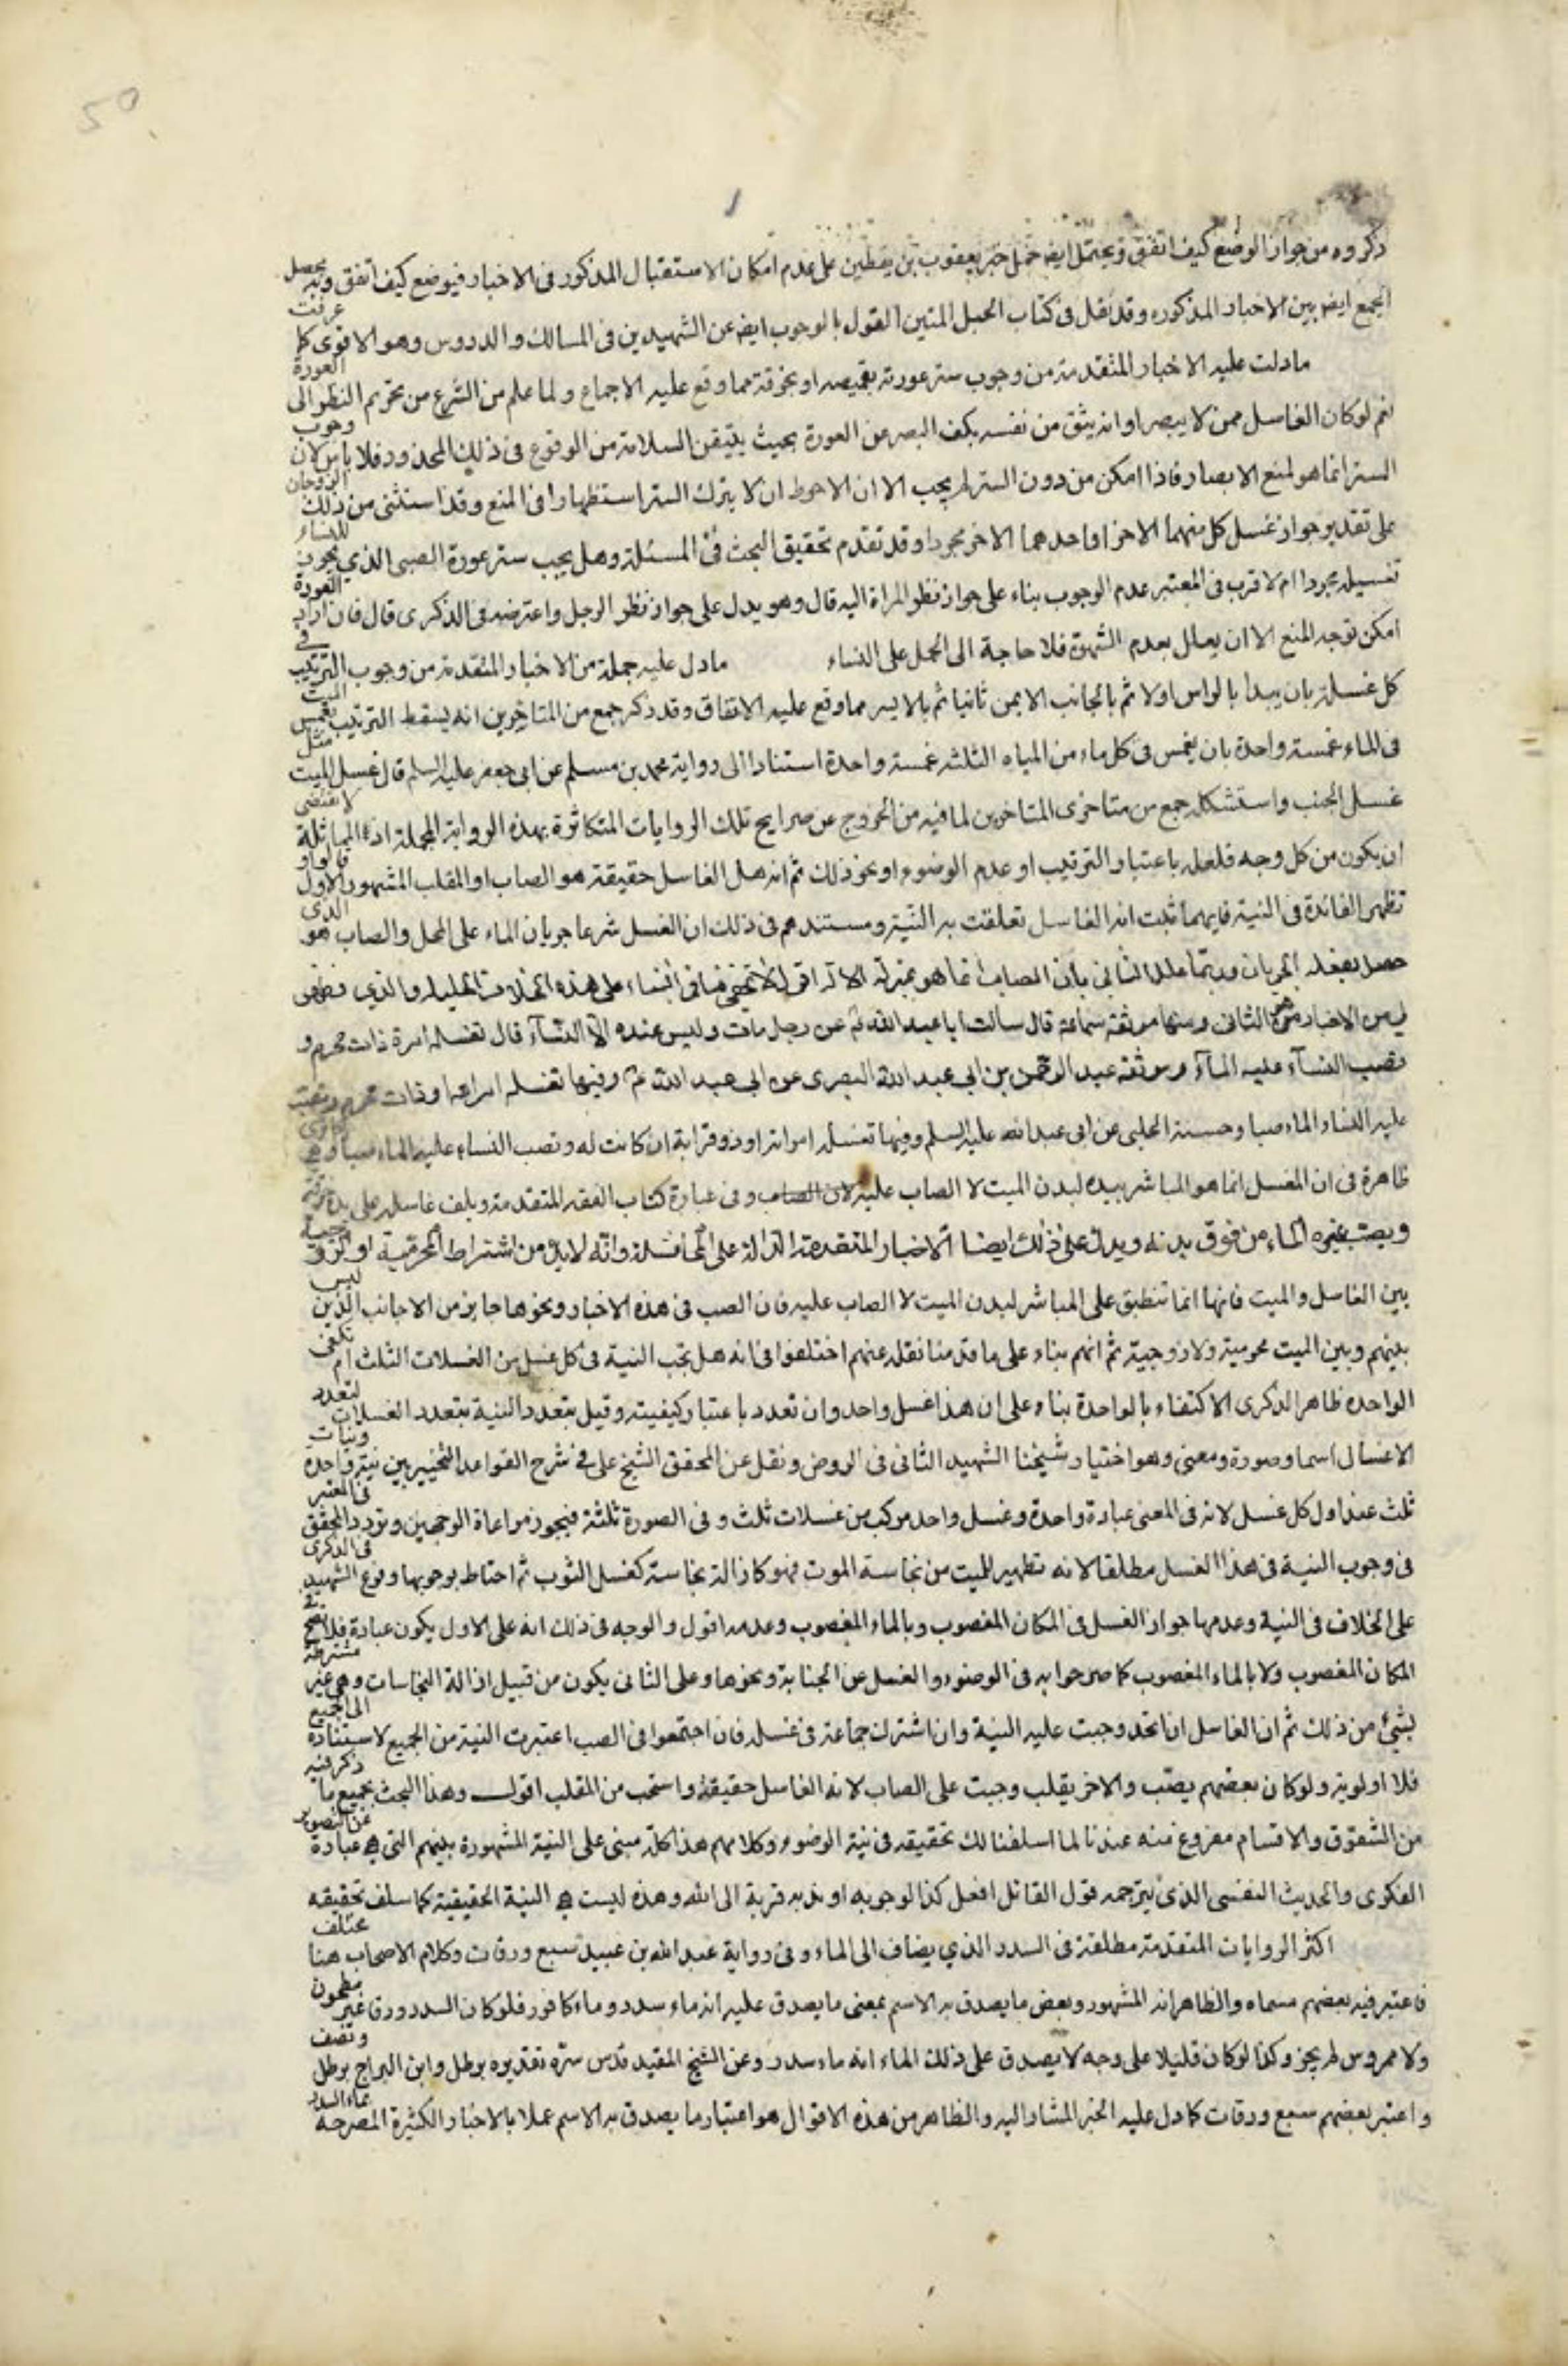 50
ذكروه من جواز الوضع كيف اتفق ويحتمل ايضا حمل خبر يعقوب بن يقطين على عدم امكان الاستقبال المذكور فى الاخبار فيوضع كيف اتفق وبه يحصل
الجمع ايضا بين الاخبار المذكوره وقد نقل فى كتاب الحبل المتين القول بالوجوب ايضا عن الشهيدين فى المسالك والدروس وهو الاقوى كما عرفت
مادلت عليه الاخبار المتقدمة من وجوب ستر عورته بقميصه او بخرقة مما وقع عليه الاجماع ولما علم من الشرع من تحريم النظر الى العورة
نعم لو كان الغاسل ممن لا يبصر او انه يثق من نفسه بكف البصر عن العورة بحيث يتيقن السلامة من الوقوع فى ذلك المحذور فلا باس لان وجوب
الستر انما هو لمنع الابصار فاذا امكن من دون الستر لم يجب الا ان الاحوط ان لا يترك الستر استظهارا فى المنع وقد استثنى من ذلك الزوجان
على تقدير جواز غسل كل منهما الاخر او احدهما الاخر مجردا وقد تقدم تحقيق البحث فى المسئلة وهل يجب ستر عورة الصبى الذي يجوز للنساء
تغسيله مجردا ام لا قرب فى المعتبر عدم الوجوب بناء على جواز نظر المراة اليه قال وهو يدل على جواز نظر الرجل واعترضه فى الذكرى قال فان اراد العورة
امكن توجه المنع الا ان يعلل بعدم الشهوة فلا حاجة الى الحمل على النساء مادل عليه جملة من الاخبار المتقدمة من وجوب الترتيب فى
كل غسلة بان يبدأ بالراس اولا ثم بالجانب الايمن ثانيا ثم بالايسر مما وقع عليه الاتفاق وقد ذكر جمع من المتاخرين انه يسقط الترتيب بغمس الميت
فى الماء غمسة واحدة بان يغمس فى كل ماء من المياه الثلثه غمسة واحدة استنادا الى رواية محمد بن مسلم عن ابى جعفر عليه السلم قال غسل الميت مثل
غسل الجنب واستشكله جمع من متاخرى المتاخرين لما فيه من الخروج عن صرايح تلك الروايات المتكاثرة بهذه الرواية المجملة اذ المماثلة لا تقتضى
ان يكون من كل وجه فلعله باعتبار الترتيب او عدم الوضوء او نحو ذلك ثم انه هل الغاسل حقيقة هو الصاب او المقلب المشهور الاول قالوا و
تظهر الفائدة فى النية فايهما ثبت انه الغاسل تعلقت به النية ومستندهم فى ذلك ان الغسل شرعا جريان الماء على المحل والصاب هو الذى
حصل بفعله الجريان وربما علل الثانى بان الصاب انما هو بمنزلة الالة اقول لا يخفى ما فى البناء على هذه الخلافات والذي فظهر
لي من الاخبار هو الثانى ومنها موثقة سماعة قال سالت ابا عبد الله ع عن رجل مات وليس عنده الا النسآء قال تغسله امرة ذات محرم و
تصب النسآء عليه المآء وموثقة عبد الرحمن بن ابى عبد الله البصرى عن ابى عبد الله ع وفيها تغسله امراته او ذات محرم وتصب
عليه النساء الماء صبا وحسنة الحلبى عن ابى عبد الله عليه السلم وفيها تغسله امراته او ذو قرابة ان كانت له وتصب النساء عليه الماء صبا وهى
ظاهرة فى ان المغسل انما هو المباشر بيده لبدن الميت لا الصاب عليه وفى عبارة كتاب الفقه المتقدمة ويلف غاسله على يده خرقة
ويصب غيره الماء من فوق بدنه ويدل على ذلك ايضا الاخبار المتقدمة الدالة على المماثلة وانه لابد من اشتراط المحرمية او الزوجية
بين الغاسل والميت فانها انما تنطبق على المباشر لبدن الميت لا الصاب عليه فان الصب فى هذه الاخبار ونحوها جايز من الاجانب الذين ليس
بينهم وبين الميت محرمية ولا زوجية ثم انهم بناء على ما قدمنا نقله عنهم اختلفوا فى انه هل تجب النية فى كل غسل من الغسلات الثلث ام تكفى
الواحده ظاهر الذكرى الاكتفاء بالواحدة بناء على ان هذا غسل واحد وان تعدد باعتبار كيفيته وقيل بتعدد النية بتعدد الغسلات لتعدد
الاغسال اسما وصورة ومعنى وهو اختيار شيخنا الشهيد الثانى فى الروض ونقل عن المحقق الشيخ على فى شرح القواعد التخيير بين نية واحدة ونيات
ثلث عند اول كل غسل لانه فى المعنى عبادة واحدة وغسل واحد مركب من غسلات ثلث وفى الصورة ثلثة فيجوز مراعاة الوجهين وتردد المحقق فى المعتبر
فى وجوب النية فى هذا الغسل مطلقا لانه تطهير للميت من نجاسة الموت فهو كازالة نجاسة كغسل الثوب ثم احتاط بوجوبها وفرع الشهيد فى الذكرى
على الخلاف فى النية وعدمها جواز الغسل فى المكان المغصوب وبالماء المغصوب وعدمه اقول والوجه فى ذلك انه على الاول يكون عبادة فلا تصح فى
المكان المغصوب ولا بالماء المغصوب كما صرحوا به فى الوضوء والغسل عن الجنابة ونحوها وعلى الثانى يكون من قبيل ازالة النجاسات وهى غير مشترطة
بشئ من ذلك ثم ان الغاسل ان اتحد وجبت عليه النية وان اشترك جماعة فى غسله فان اجتمعوا فى الصب اعتبرت النية من الجميع لاستناده الى الجميع
فلا اولوية ولو كان بعضهم يصب والاخر يقلب وجبت على الصاب لانه الغاسل حقيقة واستحب من المقلب اقول وهذا البحث بجميع ما ذكر فيه
من الشقوق والاقسام مفروغ منه عندنا لما اسلفنا لك تحقيقه فى نية الوضوء وكلامهم هذا كله مبنى على النية المشهورة بينهم التى هى عبادة عن التصوير
الفكرى والحديث النفسى الذى يترجمه قول القائل افعل كذا لوجوبه او ندبه قربة الى الله وهذه ليست هى النية الحقيقية كما سلف تحقيقه
اكثر الروايات المتقدمة مطلقة فى السدر الذي يضاف الى الماء وفى رواية عبد الله بن عبيد سبع ورقات وكلام الاصحاب هنا مختلف
فاعتبر فيه بعضهم مسماه والظاهر انه المشهور وبعض ما يصدق به الاسم بمعنى ما يصدق عليه انه ماء سدر وماء كافور فلو كان السدر ورق غير مطحون
ولا ممروس لم يجز وكذا لو كان قليلا على وجه لا يصدق على ذلك الماء انه ماء سدر وعن الشيخ المفيد قدس سره تقديره برطل وابن البراج برطل ونصف
واعتبر بعضهم سبع ورقات كما دل عليه الخبر المشار اليه والظاهر من هذه الاقوال هو اعتبار ما يصدق به الاسم عملا بالاخبار الكثيرة المصرحة بماء السدر